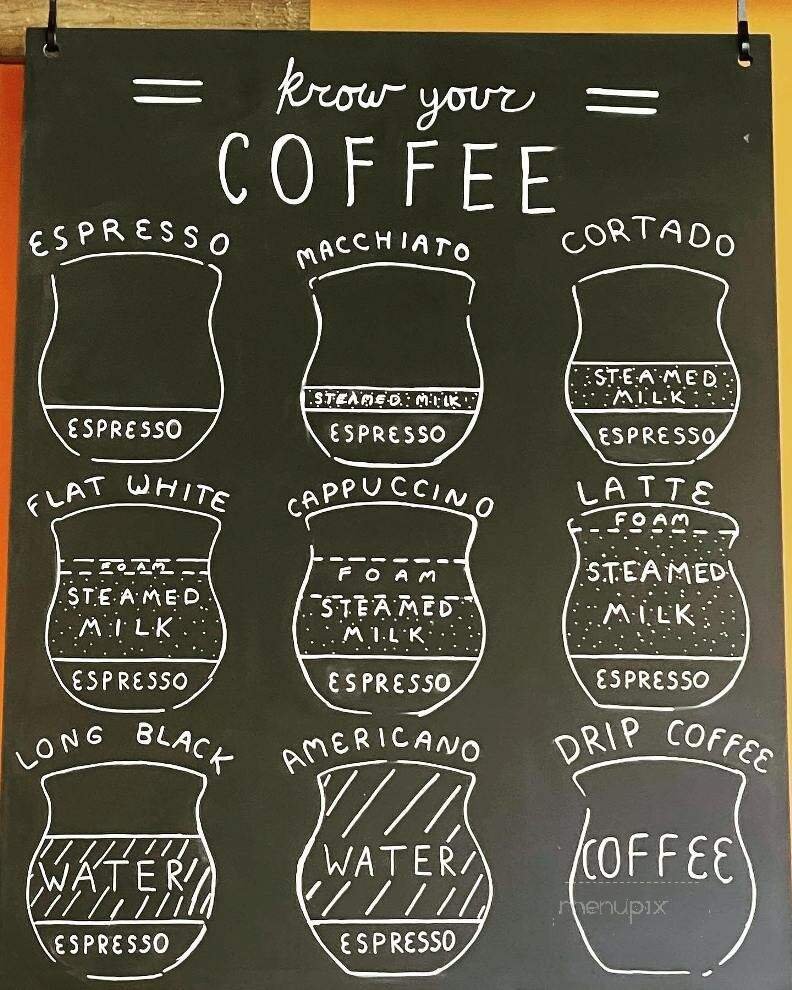 know your
COFFEE
ESPRESSO
ESPRESSO
MACCHIATO
STEAMED MILK
ESPRESSO
CORTADO
STEAMED
MILK
ESPRESSO
FLAT WHITE
FOAM
STEAMED
MILK
ESPRESSO
CAPPUCCINO
FOAM
STEAMED
MILK
ESPRESSO
LATTE
FOAM
STEAMED
MILK
ESPRESSO
LONG BLACK
WATER
ESPRESSO
AMERICANO
WATER
ESPRESSO
DRIP COFFEE
COFFEE
menupix